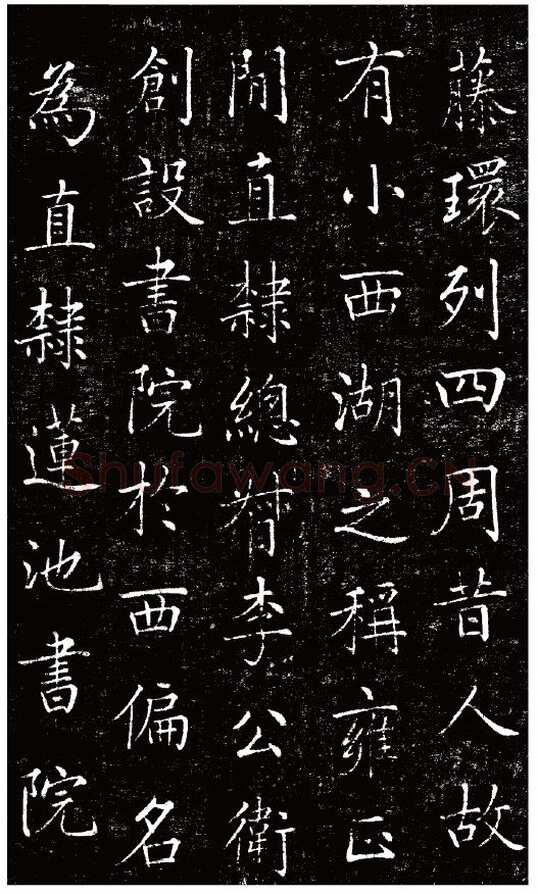 藤環列四周昔人故
有小西湖之稱雍正
間直隸總督李公衛
創設書院於西偏名
為直隸蓮池書院
Shufawang.CN